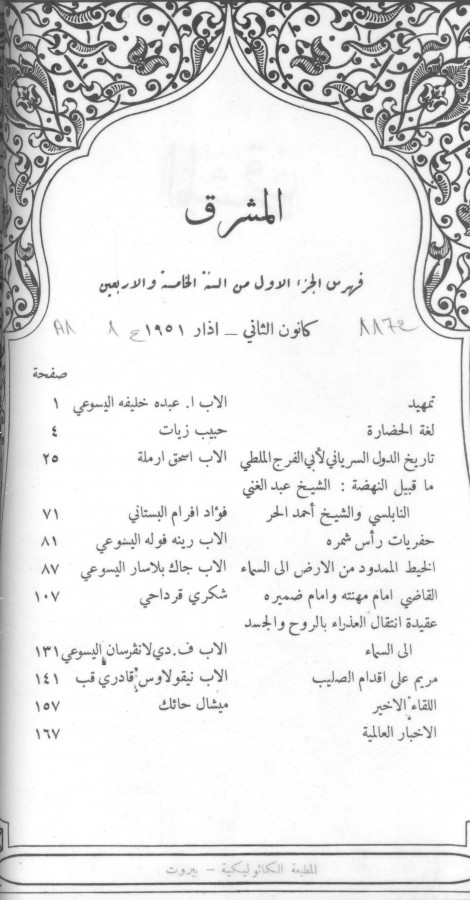 المشرق
فهرس الجزء الاول من السنة الخامسة والاربعين
كانون الثاني – اذار ١٩٥١
صفحة
تمهيد الاب ا. عبده خليفه اليسوعي ١
لغة الحضارة حبيب زيات ٤
تاريخ الدول السرياني لأبي الفرج الملطي الاب اسحق ارملة ٢٥
ما قبيل النهضة : الشيخ عبد الغني
النابلسي والشيخ أحمد الحر فؤاد افرام البستاني ٧١
حفريات رأس شمره الاب رينه فوله اليسوعي ٨١
الخيط الممدود من الارض الى السماء الاب جاك بلاسار اليسوعي ٨٧
القاضي امام مهنته وامام ضميره شكري قرداحي ١٠٧
عقيدة انتقال العذراء بالروح والجسد
الى السماء الاب ف. دي لانفرسان اليسوعي ١٣١
مريم على اقدام الصليب الاب نيقولاوس قادري قب ١٤١
اللقاء الاخير ميشال حائك ١٥٧
الاخبار العالمية ١٦٧
المطبعة الكاثوليكية – بيروت